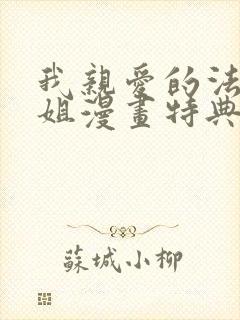 我親愛的法
姐漫畫特典
蘇城小柳